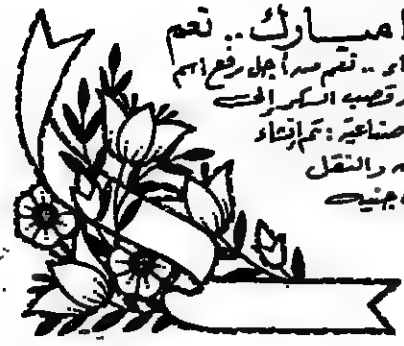 مبارك .. نعم
.. نعم من أجل رفع اسم
قصب السكر إلى
صناعية : تم إنشاء
والنقل
جنيه